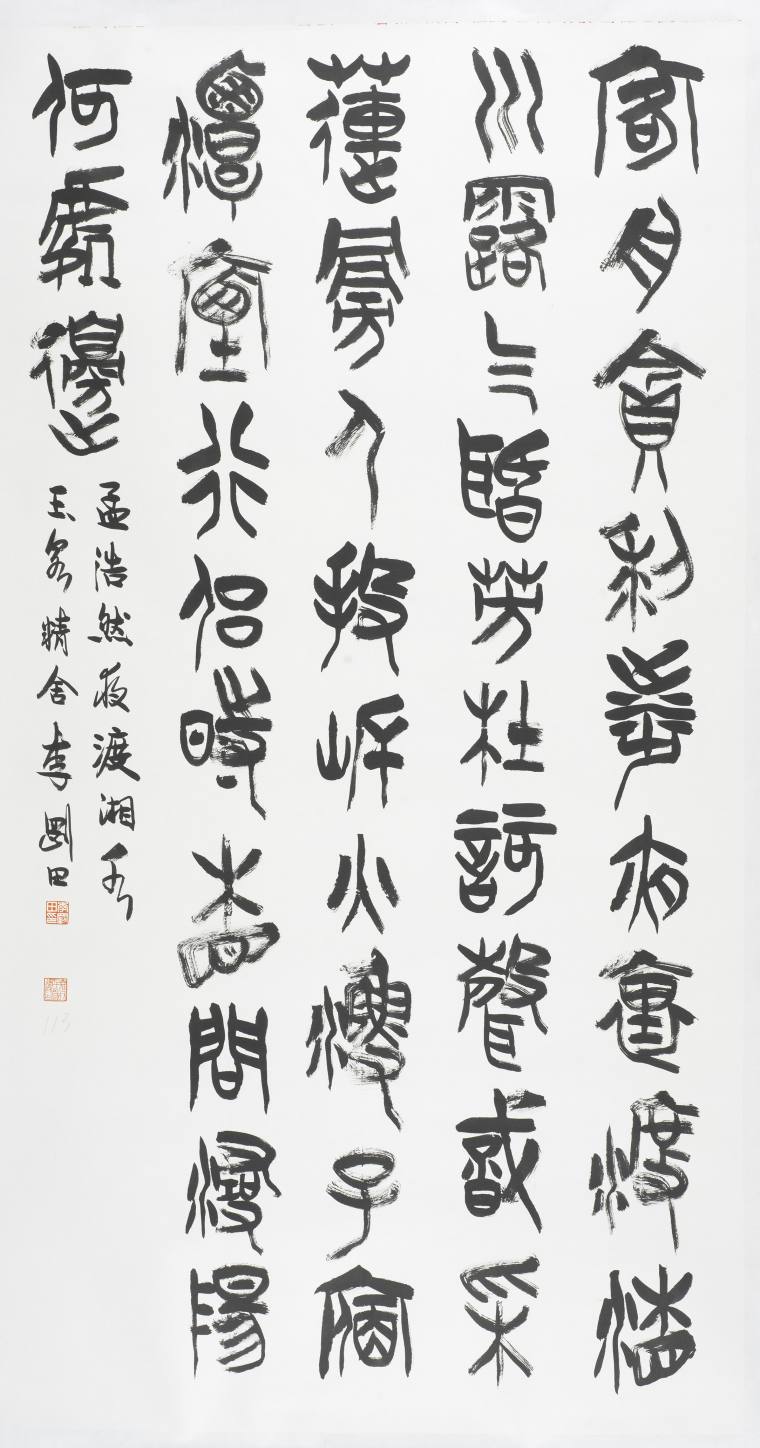 客舟貪利涉夜裏渡湘
川露气聞芳杜訶聲識采
蓮旁人投岸火漁子宿
潭煙行侶時相問潯陽
何處邊
孟浩然夜渡湘水
精舍李剛田
113